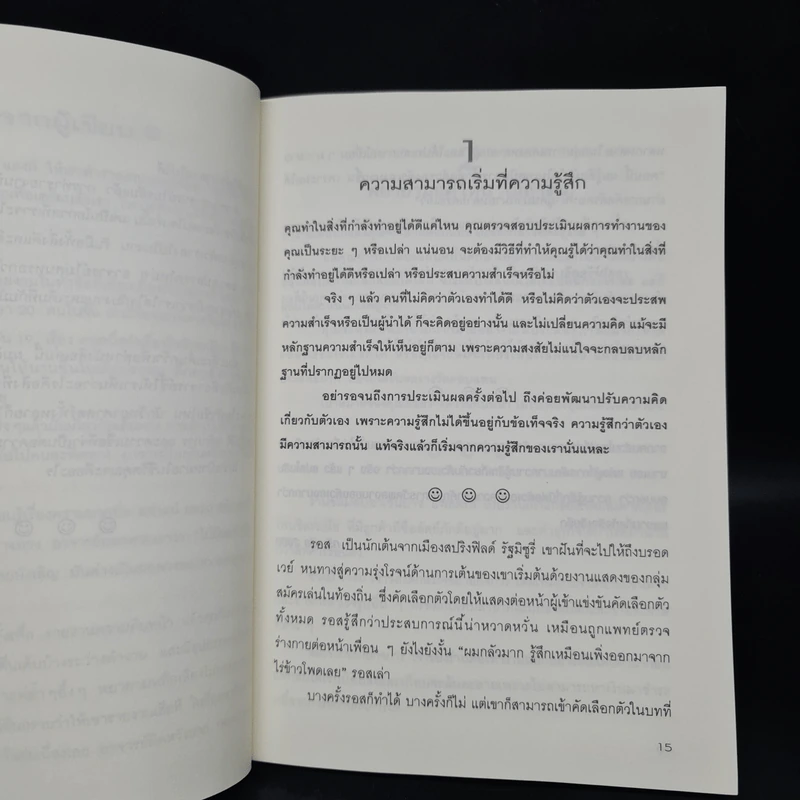 1
ความสามารถเริ่มที่ความรู้สึก
คุณทำในสิ่งที่กำลังทำอยู่ได้ดีแค่ไหน คุณตรวจสอบประเมินผลการทำงานของ
คุณเป็นระยะ ๆ หรือเปล่า แน่นอน จะต้องมีวิธีที่ทำให้คุณรู้ได้ว่าคุณทำในสิ่งที่
กำลังทำอยู่ได้ดีหรือเปล่า หรือประสบความสำเร็จหรือไม่
จริง ๆ แล้ว คนที่ไม่คิดว่าตัวเองทำได้ดี หรือไม่คิดว่าตัวเองจะประสพ
ความสำเร็จหรือเป็นผู้นำได้ ก็จะคิดอยู่อย่างนั้น และไม่เปลี่ยนความคิด แม้จะมี
หลักฐานความสำเร็จให้เห็นอยู่ก็ตาม เพราะความสงสัยไม่แน่ใจจะกลบลบหลัก
ฐานที่ปรากฏอยู่ไปหมด
อย่ารอจนถึงการประเมินผลครั้งต่อไป ถึงค่อยพัฒนาปรับความคิด
เกี่ยวกับตัวเอง เพราะความรู้สึกไม่ได้ขึ้นอยู่กับข้อเท็จจริง ความรู้สึกว่าตัวเอง
มีความสามารถนั้น แท้จริงแล้วก็เริ่มจากความรู้สึกของเรานั่นแหละ
รอส เป็นนักเต้นจากเมืองสปริงฟิลด์ รัฐมิซูรี่ เขาฝันที่จะไปให้ถึงบรอด
เวย์ หนทางสู่ความรุ่งโรจน์ด้านการเต้นของเขาเริ่มต้นด้วยงานแสดงของกลุ่ม
สมัครเล่นในท้องถิ่น ซึ่งคัดเลือกตัวโดยให้แสดงต่อหน้าผู้เข้าแข่งขันคัดเลือกตัว
ทั้งหมด รอสรู้สึกว่าประสบการณ์นี้น่าหวาดหวั่น เหมือนถูกแพทย์ตรวจ
ร่างกายต่อหน้าเพื่อน ๆ ยังไงยังงั้น “ผมกลัวมาก รู้สึกเหมือนเพิ่งออกมาจาก
ไร่ข้าวโพดเลย” รอสเล่า
บางครั้งรอสก็ทำได้ บางครั้งก็ไม่ แต่เขาก็สามารถเข้าคัดเลือกตัวในบทที่
15